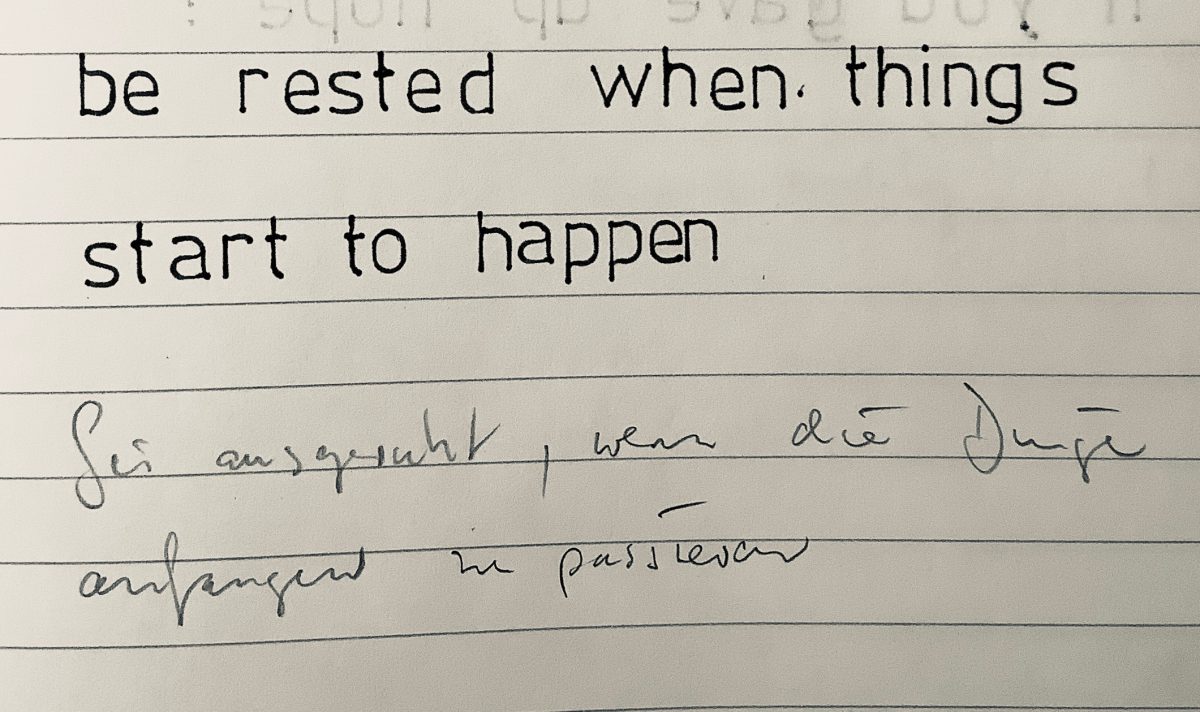 be rested when. things
start to happen
Sei ausgeruht, wenn die Dinge
anfangen zu passieren